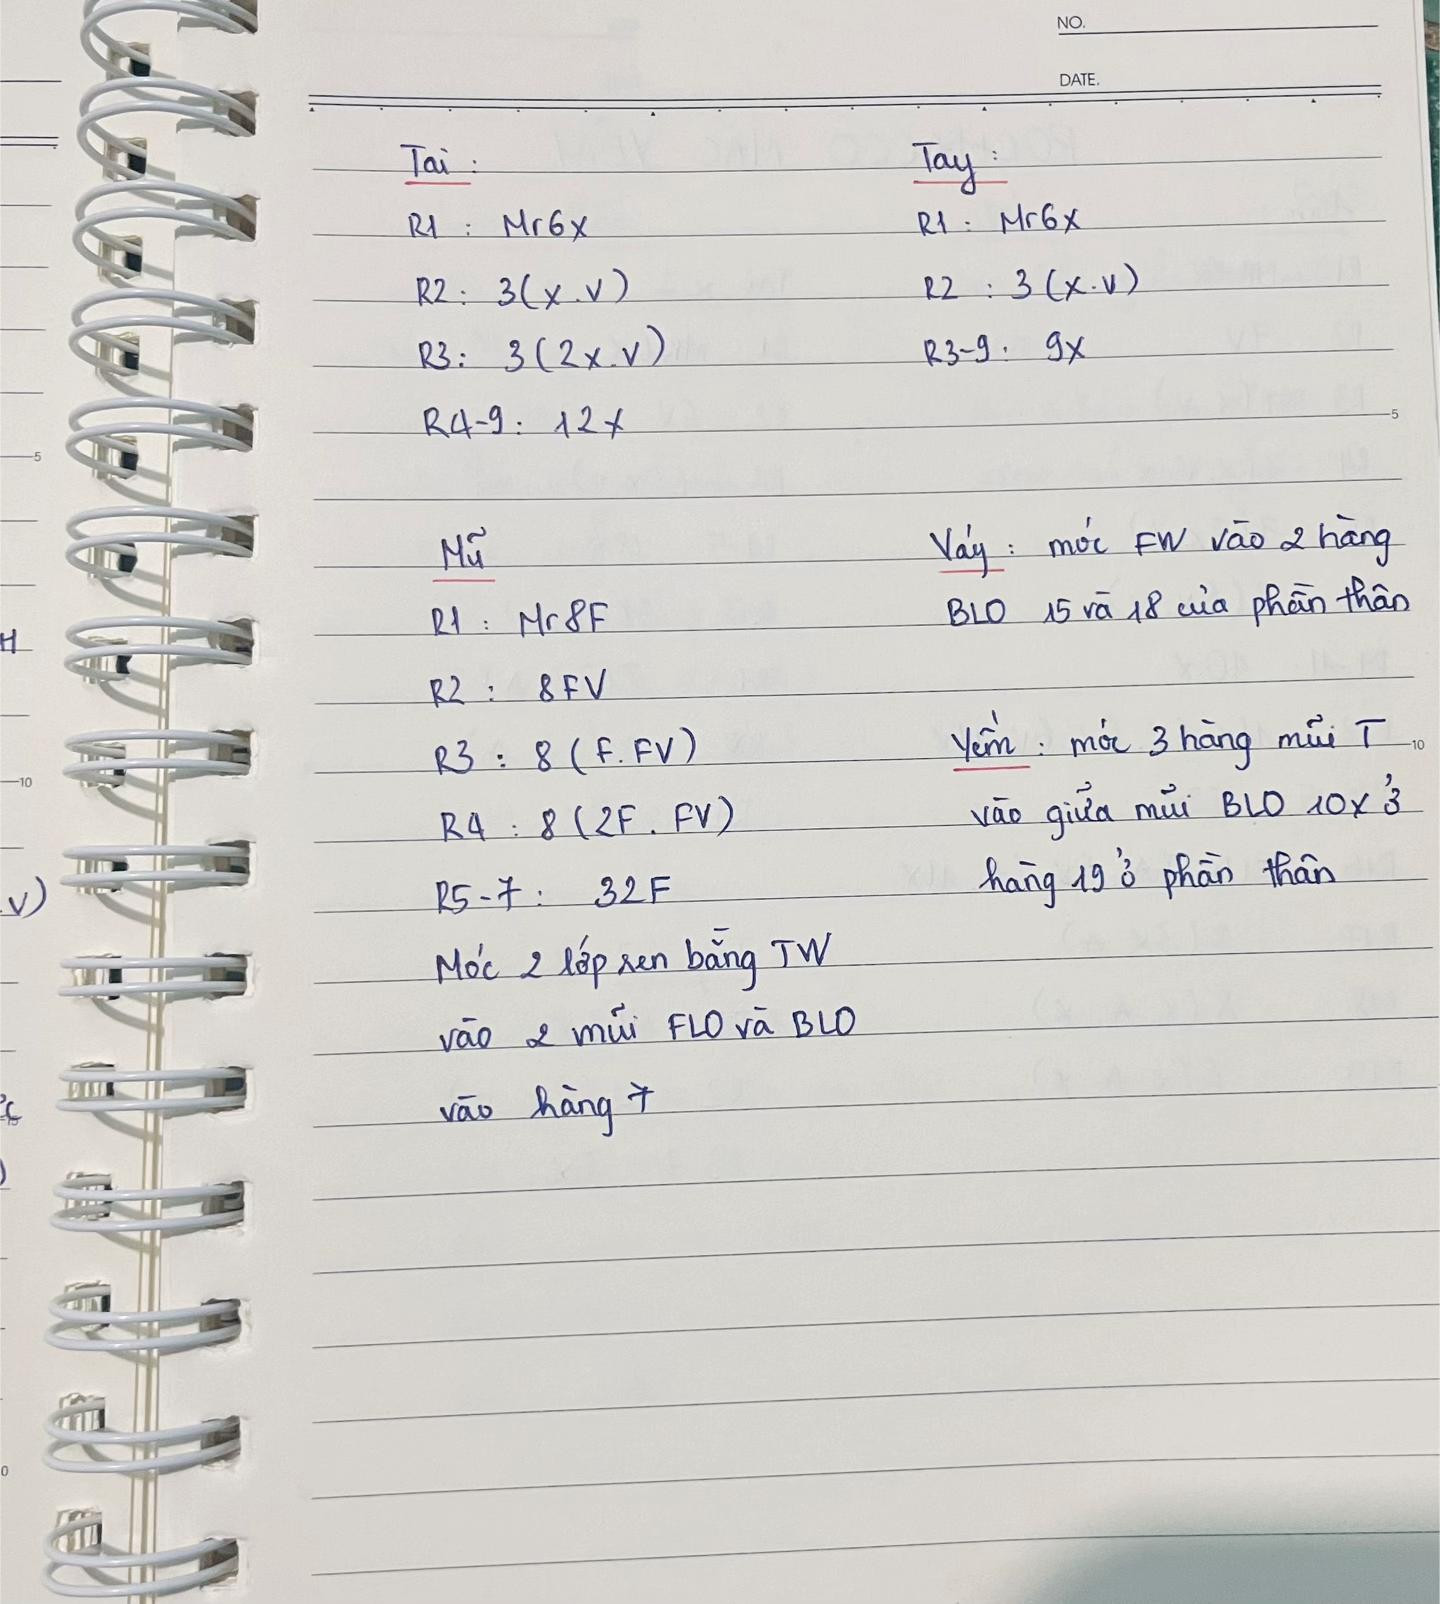 NO.
DATE.
Tai :
R1 : Mr6x
R2 : 3(x.v)
R3 : 3(2x.v)
R4-9 : 12x
Tay :
R1 : Mr6x
R2 : 3(x.v)
R3-9 : 9x
Mũ
R1 : Mr8F
R2 : 8FV
R3 : 8(F.FV)
R4 : 8(2F.FV)
R5-7 : 32F
Móc 2 lớp sen bằng TW
vào 2 mũi FLO và BLO
vào hàng 7
Váy : móc FW vào 2 hàng
BLO 15 và 18 của phần thân
Yếm : móc 3 hàng mũi T
vào giữa mũi BLO 10x ở
hàng 19 ở phần thân
5
10
5
10
H
.V)
)
0